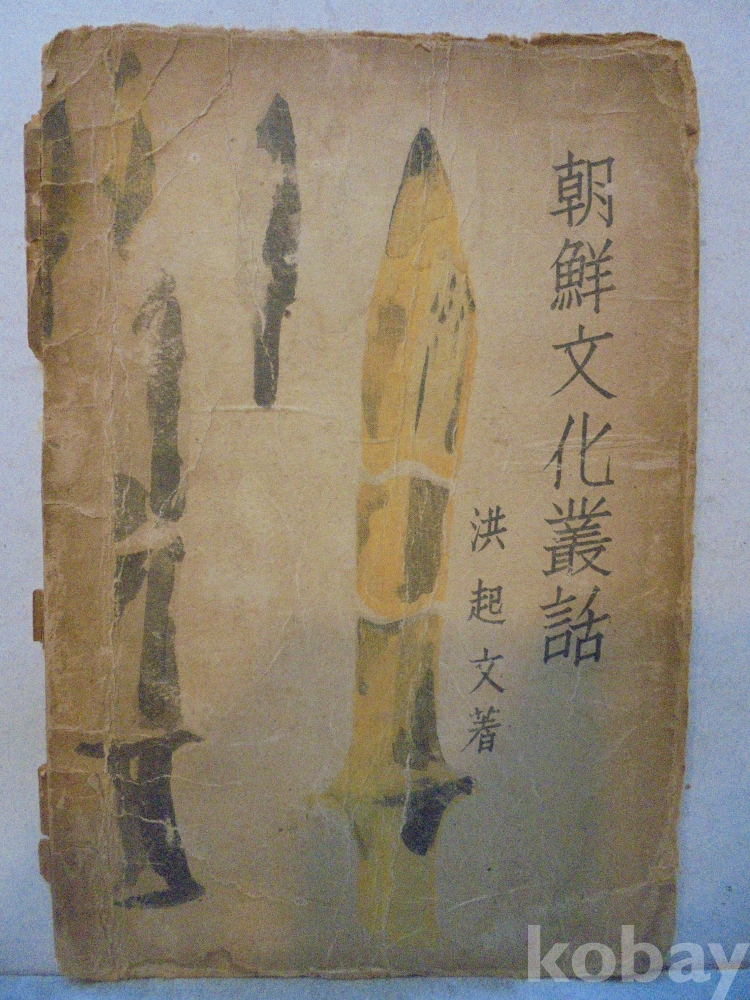 朝鮮文化叢話
洪起文著
kobay